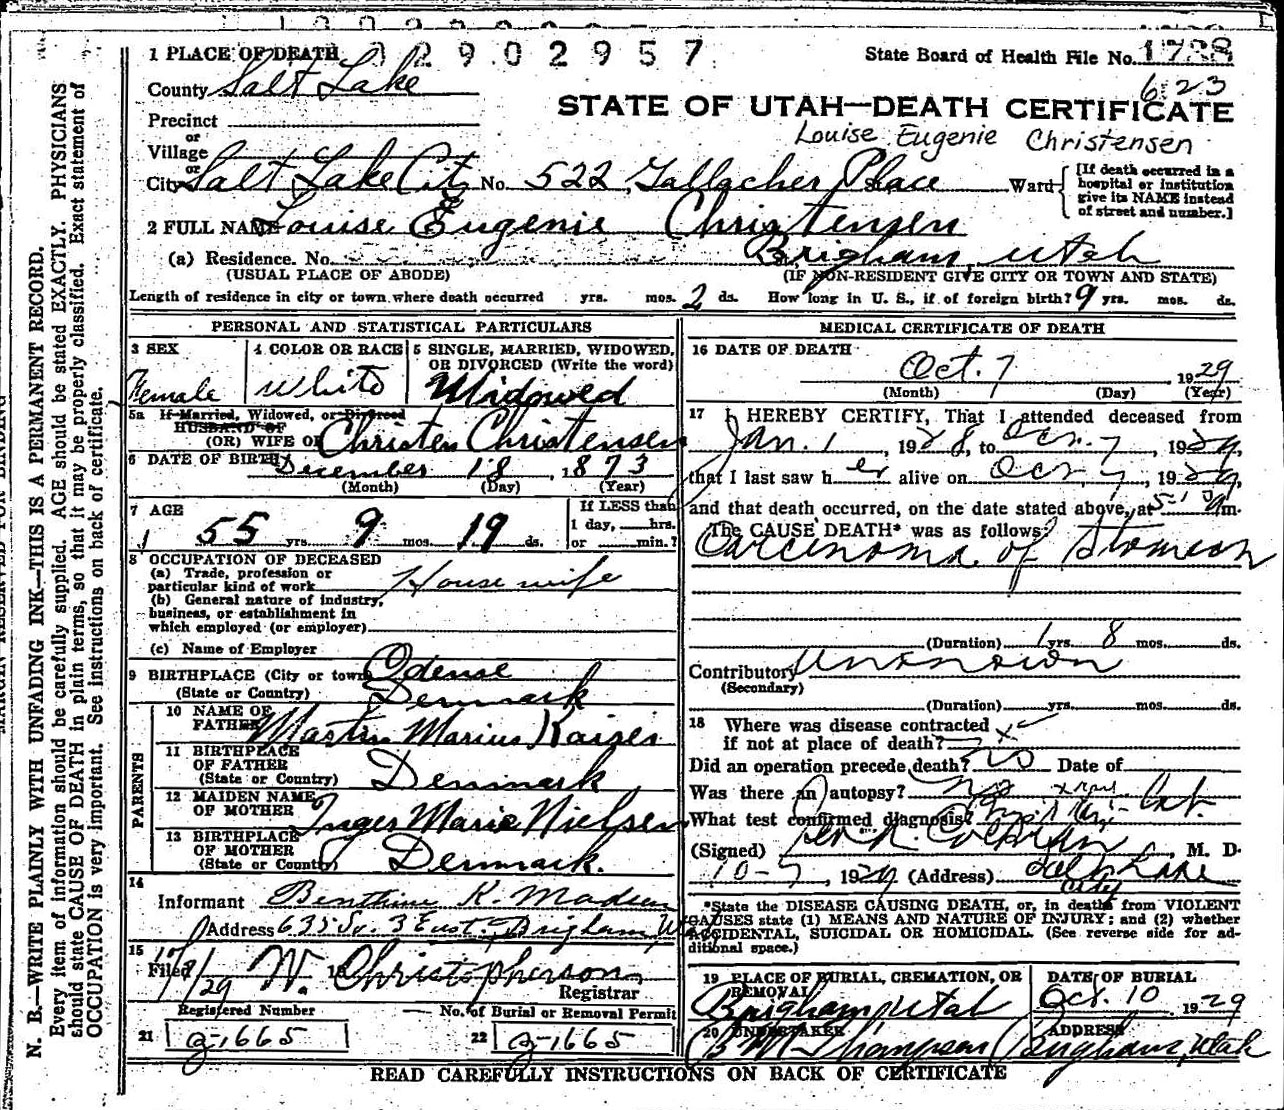 1 PLACE OF DEATH 02902957 State Board of Health File No. 1738
County Salt Lake 623
STATE OF UTAH—DEATH CERTIFICATE
Precinct
Louise Eugenie Christensen
or
Village
or
City Salt Lake City No. 522 Gallacher Place Ward [If death occurred in a hospital or institution give its NAME instead of street and number.]
2 FULL NAME Louise Eugenie Christensen
(a) Residence. No. Brigham, Utah
(USUAL PLACE OF ABODE) (IF NON-RESIDENT GIVE CITY OR TOWN AND STATE)
Length of residence in city or town where death occurred yrs. mos. 2 ds. How long in U. S., if of foreign birth? 9 yrs. mos. ds.
PERSONAL AND STATISTICAL PARTICULARS
3 SEX
Female
4 COLOR OR RACE
White
5 SINGLE, MARRIED, WIDOWED, OR DIVORCED (Write the word)
Widowed
5a If Married, Widowed, or Divorced
HUSBAND OF
(OR) WIFE OF Christen Christensen
6 DATE OF BIRTH December 18 1873
(Month) (Day) (Year)
7 AGE
55 yrs. 9 mos. 19 ds.
If LESS than
1 day, hrs.
or min.?
8 OCCUPATION OF DECEASED
(a) Trade, profession or
particular kind of work Housewife
(b) General nature of industry,
business, or establishment in
which employed (or employer)
(c) Name of Employer
9 BIRTHPLACE (City or town) Odense
(State or Country) Denmark
PARENTS
10 NAME OF
FATHER Martin Marius Kaiser
11 BIRTHPLACE
OF FATHER
(State or Country) Denmark
12 MAIDEN NAME
OF MOTHER Inger Marie Nielsen
13 BIRTHPLACE
OF MOTHER
(State or Country) Denmark.
14
Informant Benthine K. Madsen
Address 635 So. 3 East. Brigham,
15
Filed 10/9/29 W. Christopherson
Registrar
Registered Number — No. of Burial or Removal Permit
21 1665 22 1665
MEDICAL CERTIFICATE OF DEATH
16 DATE OF DEATH
Oct. 7 1929
(Month) (Day) (Year)
17 I HEREBY CERTIFY, That I attended deceased from
Jan. 1, 1928, to Oct. 7, 1929,
that I last saw her alive on Oct 7, 1929,
and that death occurred, on the date stated above, at m.
The CAUSE DEATH* was as follows:
Carcinoma of Stomach
(Duration) 1 yrs. 8 mos. ds.
Contributory Unknown
(Secondary)
(Duration) yrs. mos. ds.
18 Where was disease contracted
if not at place of death? x
Did an operation precede death? no Date of
Was there an autopsy? no xray
What test confirmed diagnosis?
(Signed) M. D.
10-7, 1929 (Address) Salt Lake
City
*State the DISEASE CAUSING DEATH, or, in deaths from VIOLENT
CAUSES state (1) MEANS AND NATURE OF INJURY; and (2) whether
ACCIDENTAL, SUICIDAL OR HOMICIDAL. (See reverse side for ad-
ditional space.)
19 PLACE OF BURIAL, CREMATION, OR REMOVAL
Brigham Utah
DATE OF BURIAL
Oct. 10 1929
20 UNDERTAKER
Thompson
ADDRESS
Brigham, Utah
READ CAREFULLY INSTRUCTIONS ON BACK OF CERTIFICATE
MARGIN RESERVED FOR BINDING
N. B.—WRITE PLAINLY WITH UNFADING INK—THIS IS A PERMANENT RECORD.
Every item of information should be carefully supplied. AGE should be stated EXACTLY. PHYSICIANS
should state CAUSE OF DEATH in plain terms, so that it may be properly classified. Exact statement of
OCCUPATION is very important. See instructions on back of certificate.